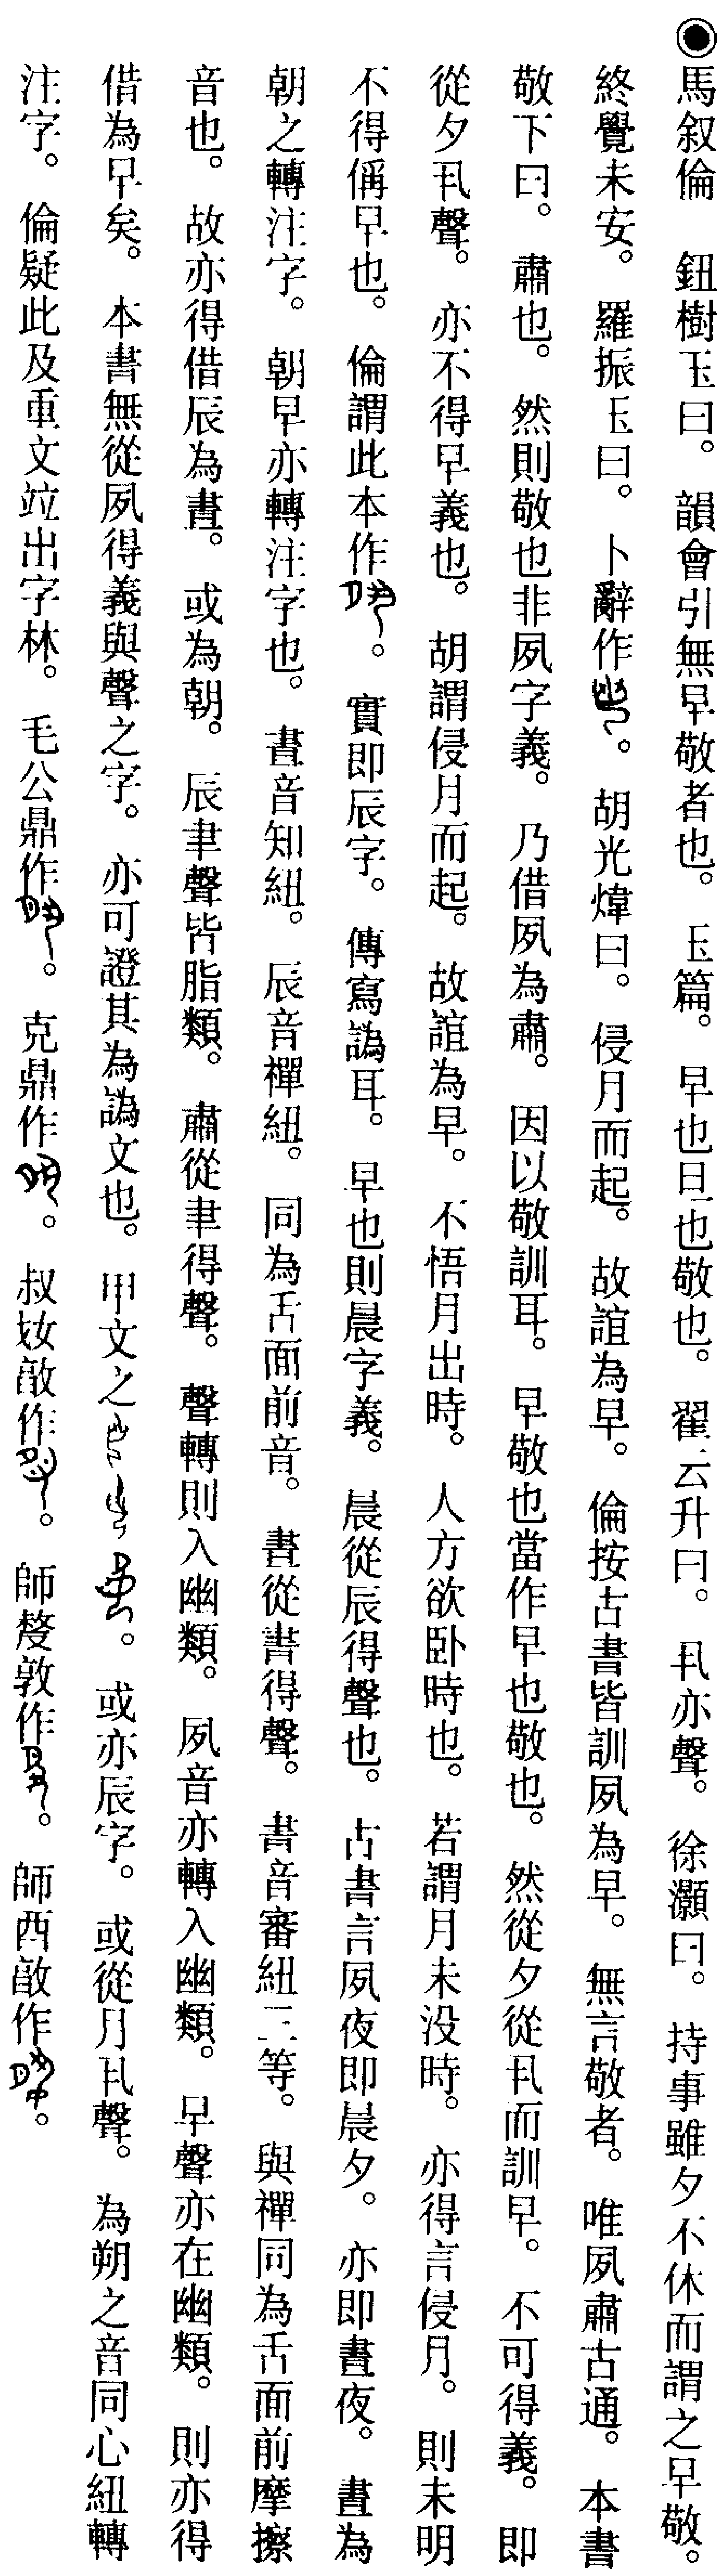 ◉馬叙倫　鈕樹玉曰。韻會引無早敬者也。玉篇。早也旦也敬也。翟云升曰。丮亦聲。徐灝曰。持事雖夕不休而謂之早敬。
終覺未安。羅振玉曰。卜辭作。胡光煒曰。侵月而起。故誼為早。倫按古書皆訓夙為早。無言敬者。唯夙肅古通。本書
敬下曰。肅也。然則敬也非夙字義。乃借夙為肅。因以敬訓耳。早敬也當作早也敬也。然從夕從丮而訓早。不可得義。即
從夕丮聲。亦不得早義也。胡謂侵月而起。故誼為早。不悟月出時。人方欲卧時也。若謂月未没時。亦得言侵月。則未明
不得偁早也。倫謂此本作。實即辰字。傳寫譌耳。早也則晨字義。晨從辰得聲也。古書言夙夜即晨夕。亦即晝夜。晝為
朝之轉注字。朝早亦轉注字也。晝音知紐。辰音禪紐。同為舌面前音。晝從書得聲。書音審紐三等。與禪同為舌面前摩擦
音也。故亦得借辰為晝。或為朝。辰聿聲皆脂類。肅從聿得聲。聲轉則入幽類。夙音亦轉入幽類。早聲亦在幽類。則亦得
借為早矣。本書無從夙得義與聲之字。亦可證其為譌文也。甲文之。或亦辰字。或從月丮聲。為朔之音同心紐轉
注字。倫疑此及重文竝出字林。毛公鼎作。克鼎作。叔㚸敵作。師𠩺敦作。師酉敵作。